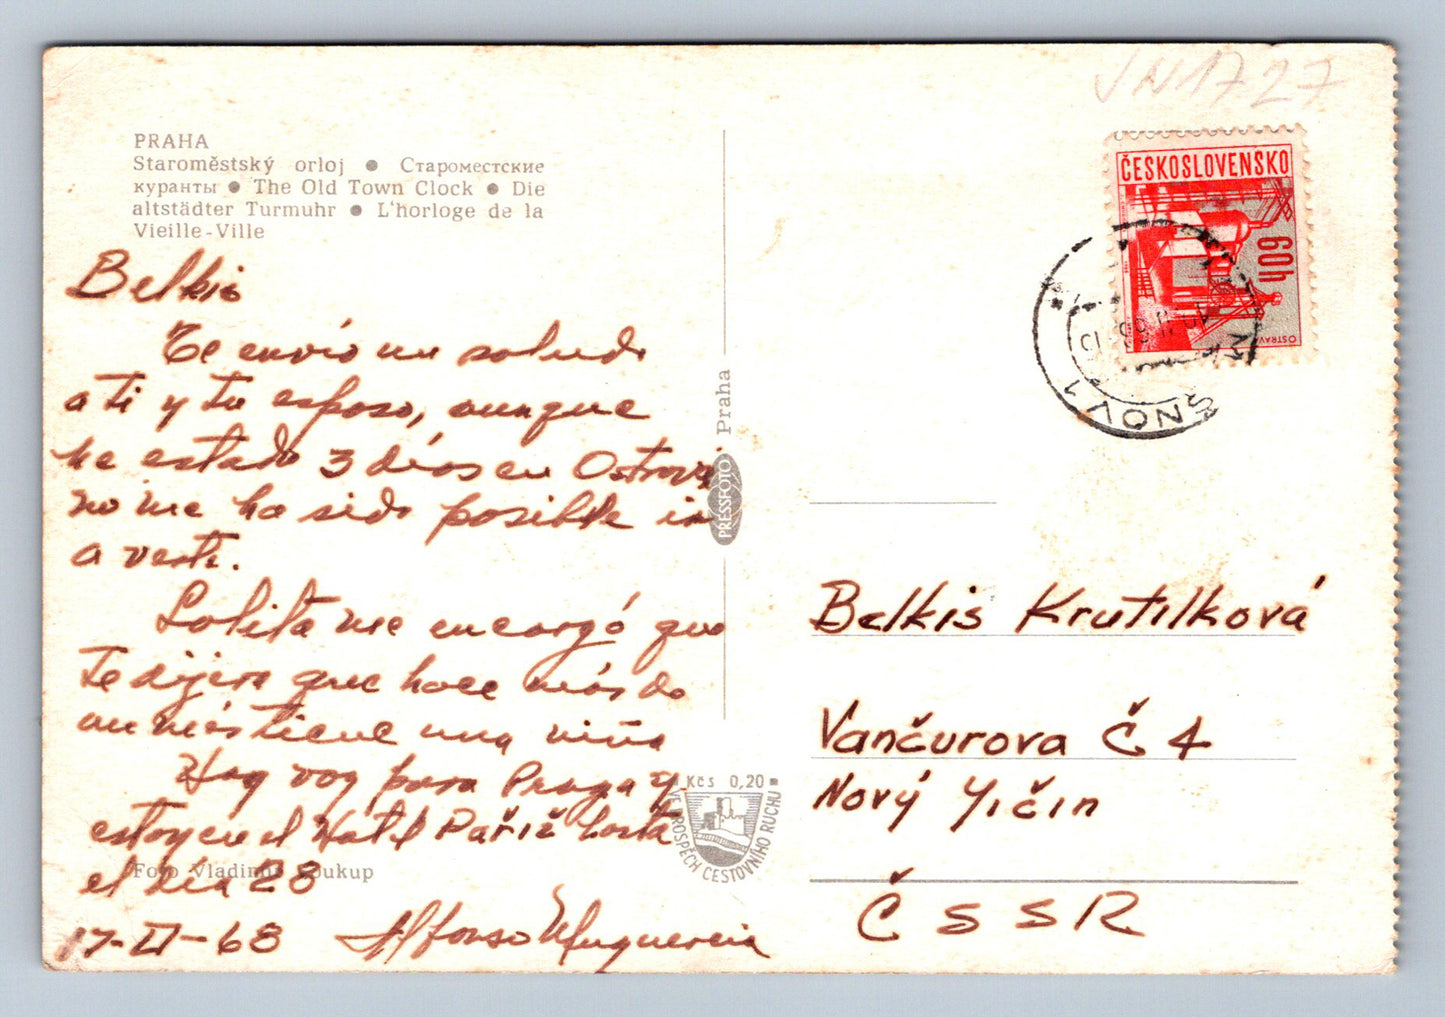 VN1727
PRAHA
Staroměstský orloj ● Староместские
куранты ● The Old Town Clock ● Die
altstädter Turmuhr ● L'horloge de la
Vieille-Ville
Belkis
Te envío un saludo
a ti y tu esposo, aunque
he estado 3 días en Ostrava
no me ha sido posible ir
a verte.
Lolita me encargó que
te dijera que hace más de
un mes tiene una niña
Hoy voy para Praga y
estoy en el Hotel Pařiž hasta
el día 28
17-II-68 Alfonso Muguercia
Foto Vladimír Soukup
Praha
PRESSFOTO
Kčs 0,20
VE PROSPĚCH CESTOVNÍHO RUCHU
ČESKOSLOVENSKO
60h
OSTRAVA
Belkis Krutilková
Vančurova Č 4
Nový Yičín
ČSSR